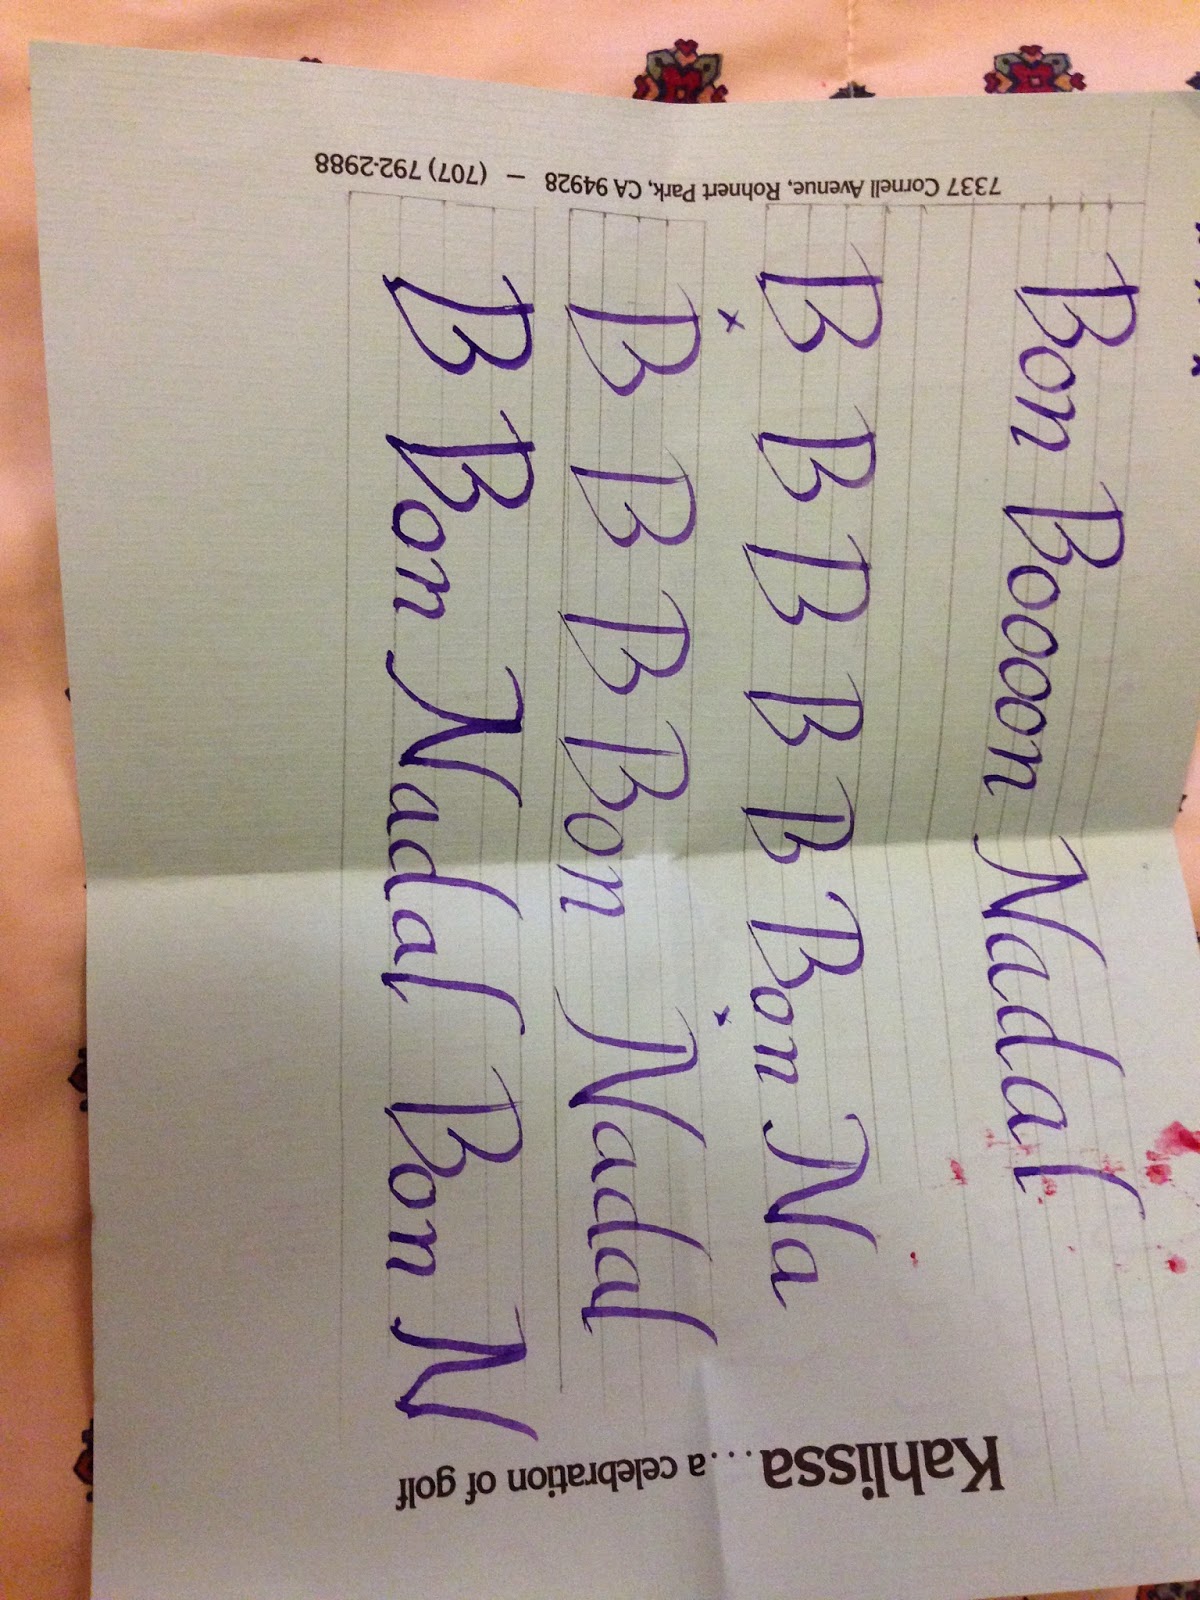 Bon Boooon Nadal
B B B B B Bon Na
B B B Bon Nadal
B Bon Nadal Bon N
Kahlissa...a celebration of golf
7337 Cornell Avenue, Rohnert Park, CA 94928 – (707) 792-2988